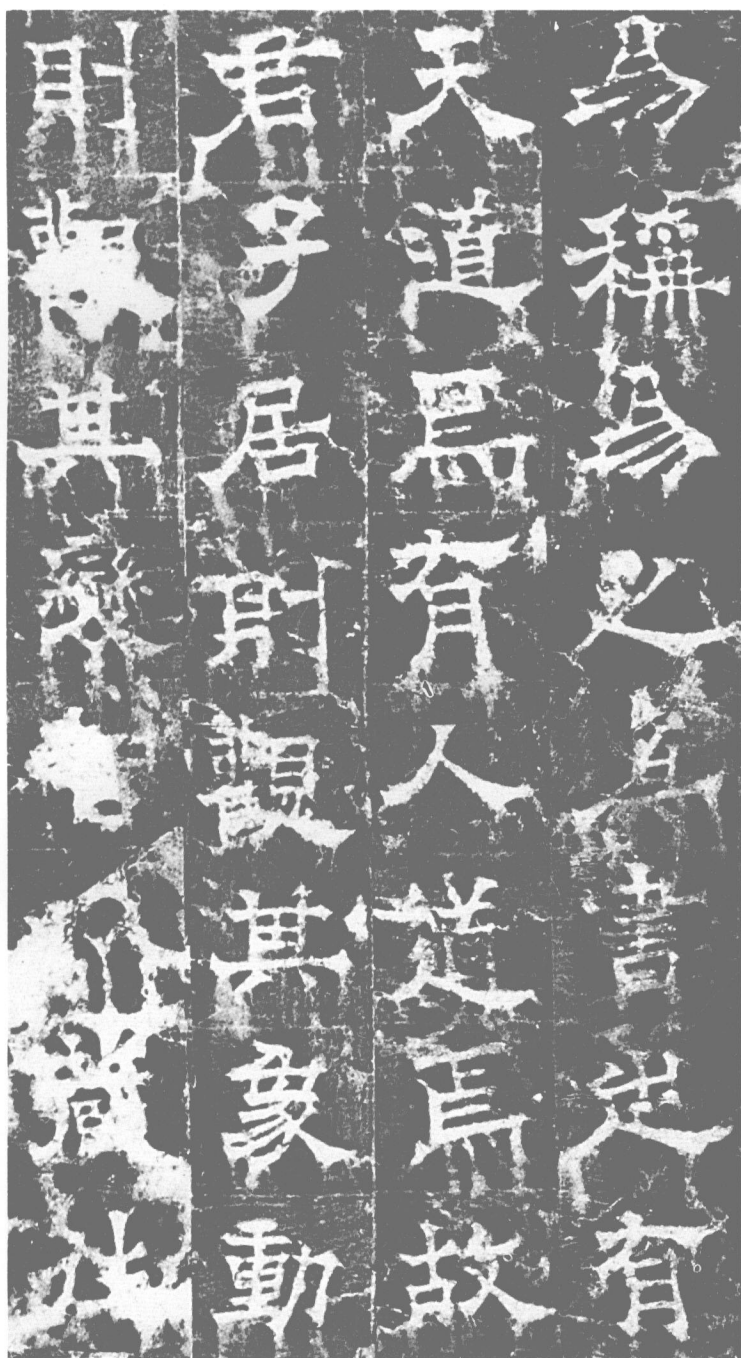 易稱易之書也有
天道焉有人道焉故
君子居則觀其象動
則其變